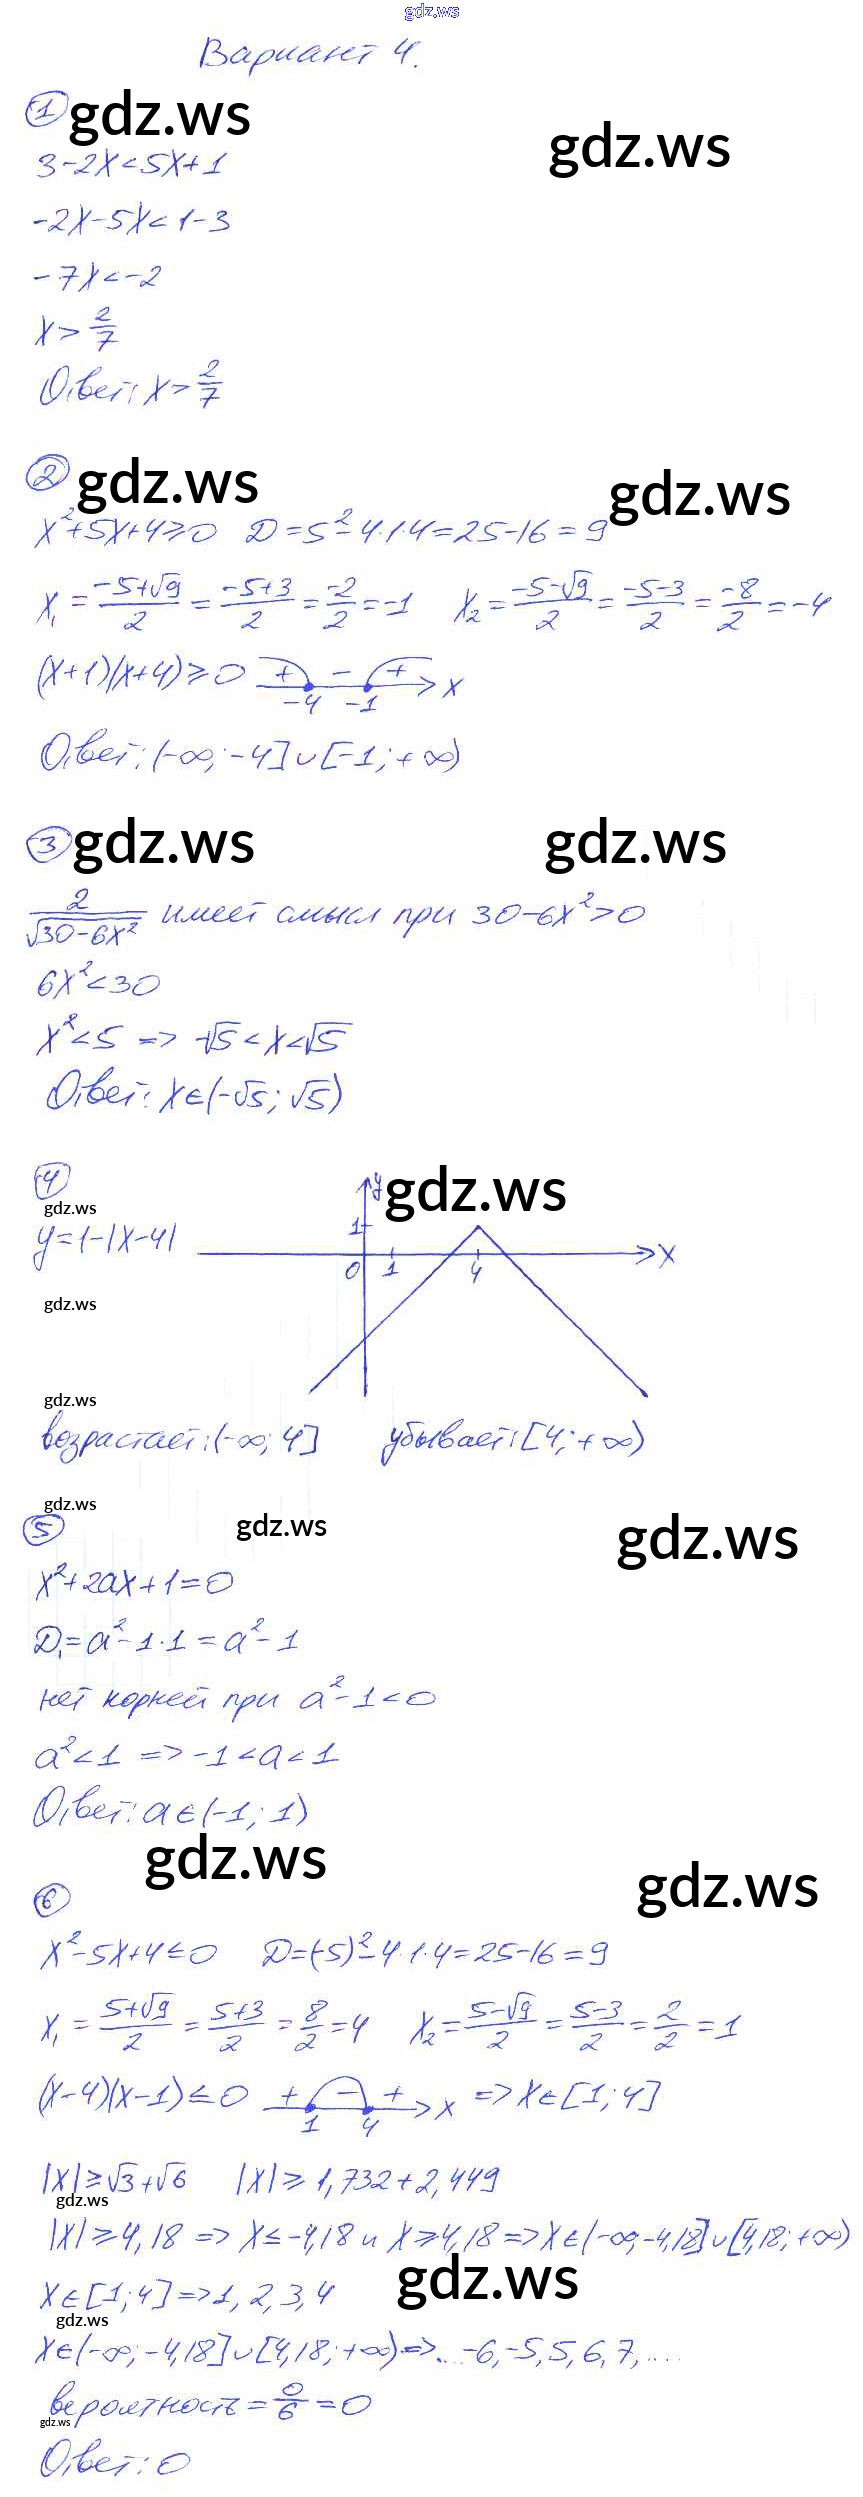 gdz.ws
Вариант 4.
1 gdz.ws gdz.ws
3-2x<5x+1
-2x-5x<1-3
-7x<-2
x>2/7
Ответ: x>2/7
2 gdz.ws gdz.ws
x²+5x+4≥0 D=5²-4·1·4=25-16=9
x₁=(-5+√9)/2=(-5+3)/2=-2/2=-1 x₂=(-5-√9)/2=(-5-3)/2=-8/2=-4
(x+1)(x+4)≥0 + - + x
-4 -1
Ответ: (-∞;-4]∪[-1;+∞)
3 gdz.ws gdz.ws
2/√(30-6x²) имеет смысл при 30-6x²>0
6x²<30
x²<5 => -√5<x<√5
Ответ: x∈(-√5;√5)
4 gdz.ws
gdz.ws
y=1-|x-4|
y
1
x
0 1 4
gdz.ws
gdz.ws
возрастает: (-∞;4] убывает: [4;+∞)
gdz.ws
5 gdz.ws gdz.ws
x²+2ax+1=0
D₁=a²-1·1=a²-1
нет корней при a²-1<0
a²<1 => -1<a<1
Ответ: a∈(-1;1)
gdz.ws gdz.ws
6
x²-5x+4≤0 D=(-5)²-4·1·4=25-16=9
x₁=(5+√9)/2=(5+3)/2=8/2=4 x₂=(5-√9)/2=(5-3)/2=2/2=1
(x-4)(x-1)≤0 + - + x => x∈[1;4]
1 4
|x|≥√3+√6 |x|≥1,732+2,449
gdz.ws
|x|≥4,18 => x≤-4,18 и x≥4,18 => x∈(-∞;-4,18]∪[4,18;+∞)
gdz.ws
x∈[1;4] => 1,2,3,4
gdz.ws
x∈(-∞;-4,18]∪[4,18;+∞) => ...-6,-5,5,6,7,....
вероятность=0/6=0
gdz.ws
Ответ: 0